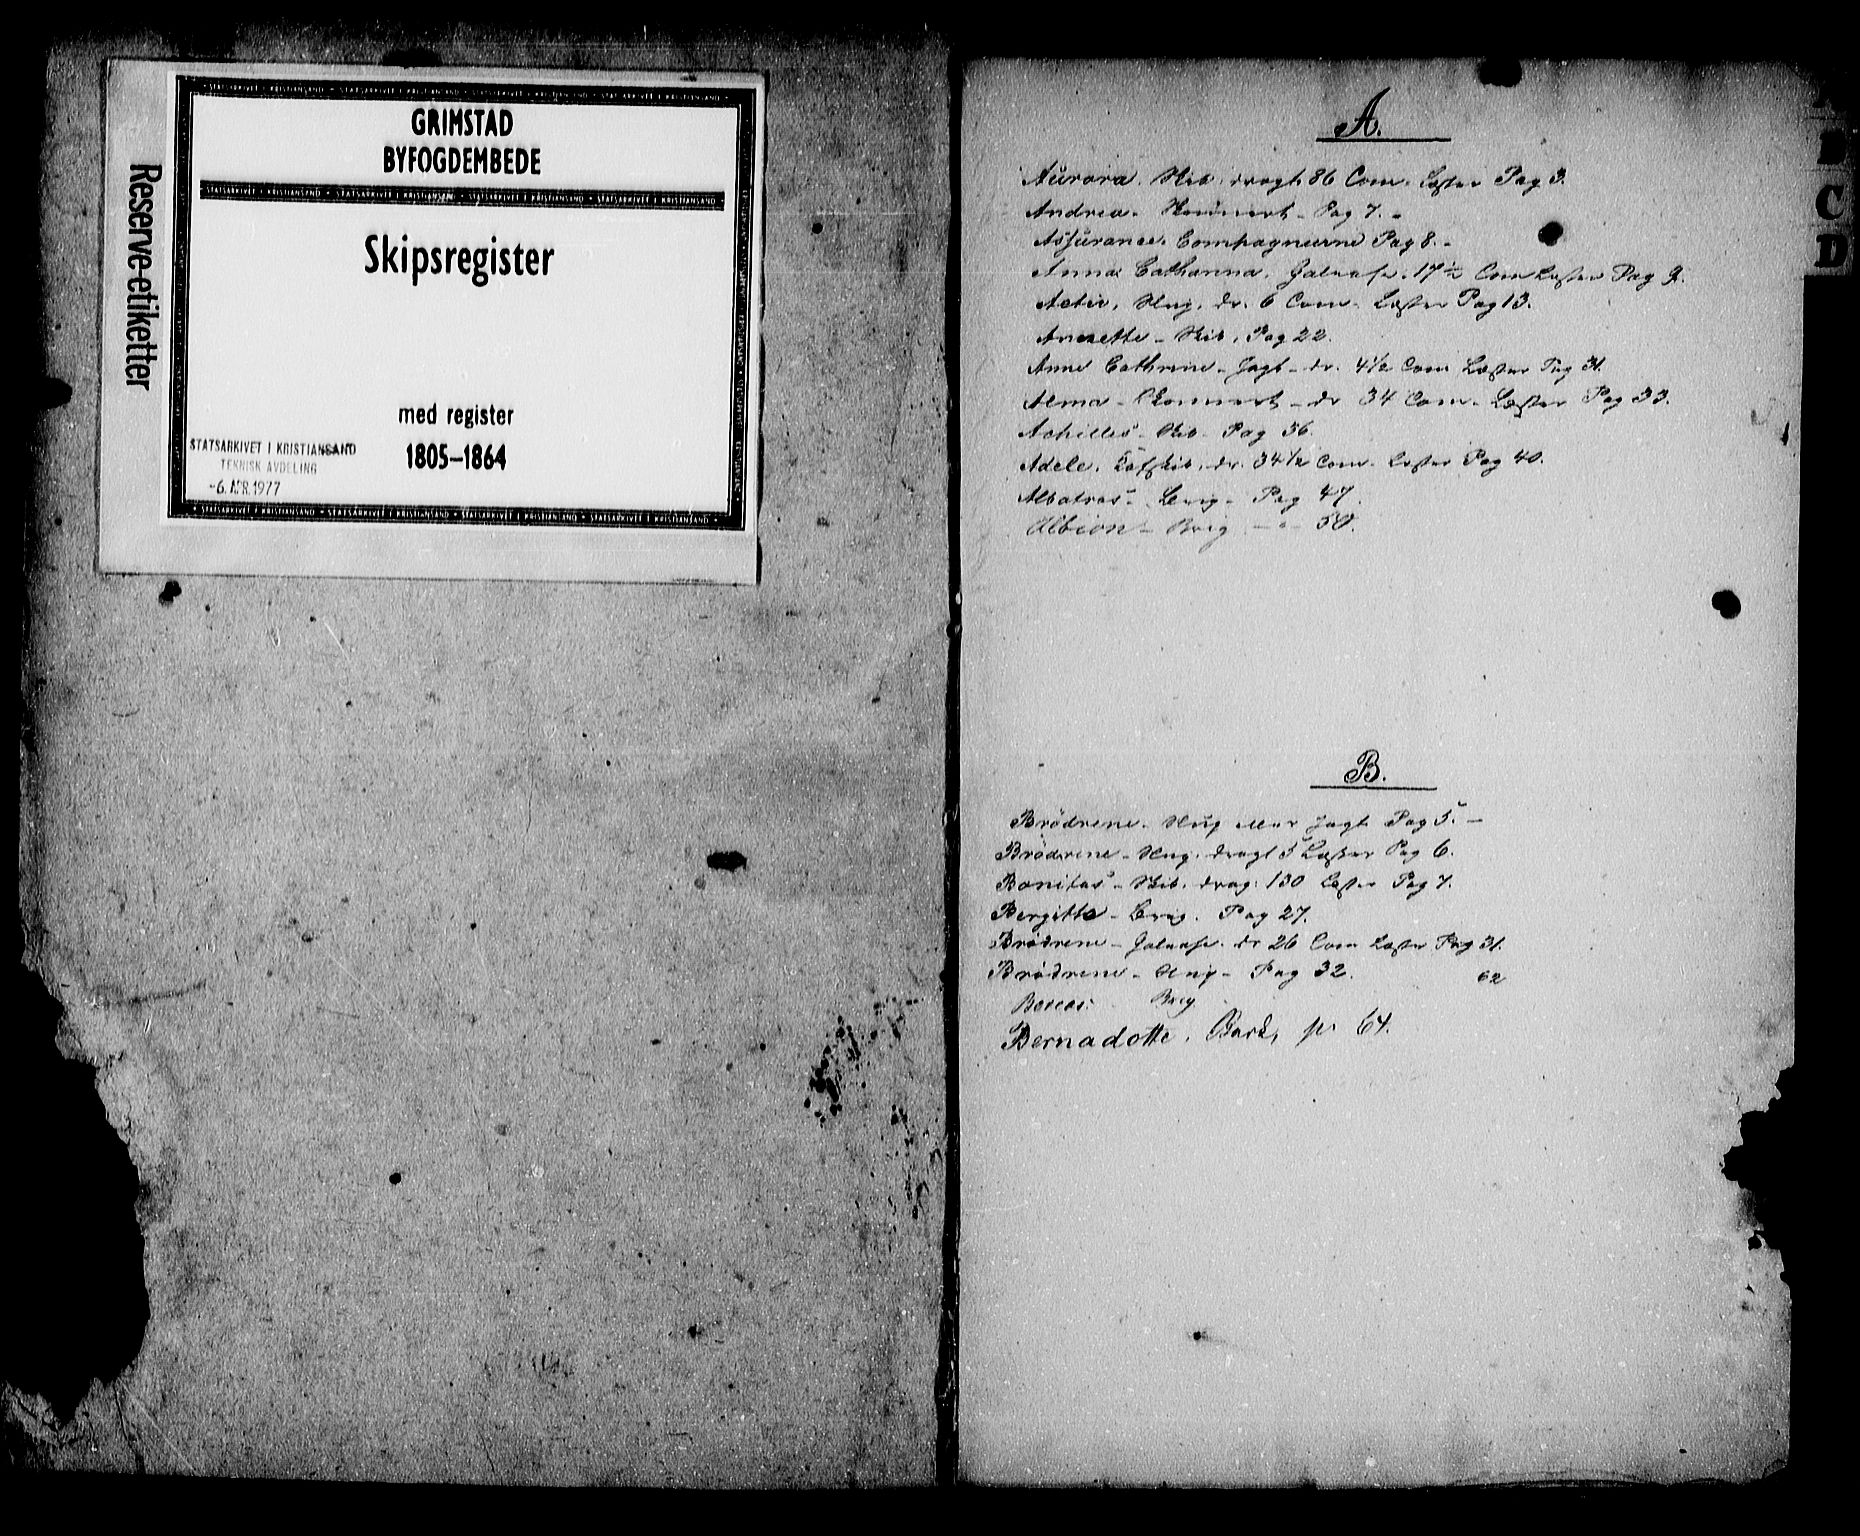 Reserve-etiketter
GRIMSTAD
BYFOGDEMBEDE
Skipsregister
med register
1805–1864
STATSARKIVET I KRISTIANSAND
TEKNISK AVDELING
-6. APR. 1977
A.
Aurora. Skib. drægt. 86 Com. Læster Pag 3.
Andrea. Pag 7. -
Assurance. Compagnierne Pag 8. -
Anna Cathanna. Galease. 17½ Com Læster Pag 9.
Activ. Slup. dr. 6 Com. Læster Pag 13.
Annette - Skib. Pag 22.
Anne Cathrine - Jagt - dr. 4½ Com Læster Pag 31.
Alma - - dr 34 Com. Læster Pag 33.
Achilles - Skib - Pag 36.
Adele. dr. 34½ Com. Læster Pag 40.
Albatros - Brig - Pag 47.
Albion - Brig - " - 50.
B.
Brödrene. Slup Jagt Pag 5. -
Brödrene - Slup. drægt 5 Læster Pag 6.
Bonitas - Skib. dræg. 130 Læster Pag 7.
Bergitte - Brig. Pag 27.
Brödrene - Galease. dr 26 Com Læster Pag 31.
Brödrene - Slup - Pag 32.
Boreas. Brig 62
Bernadotte. Bark, p. 64.
A
B
C
D